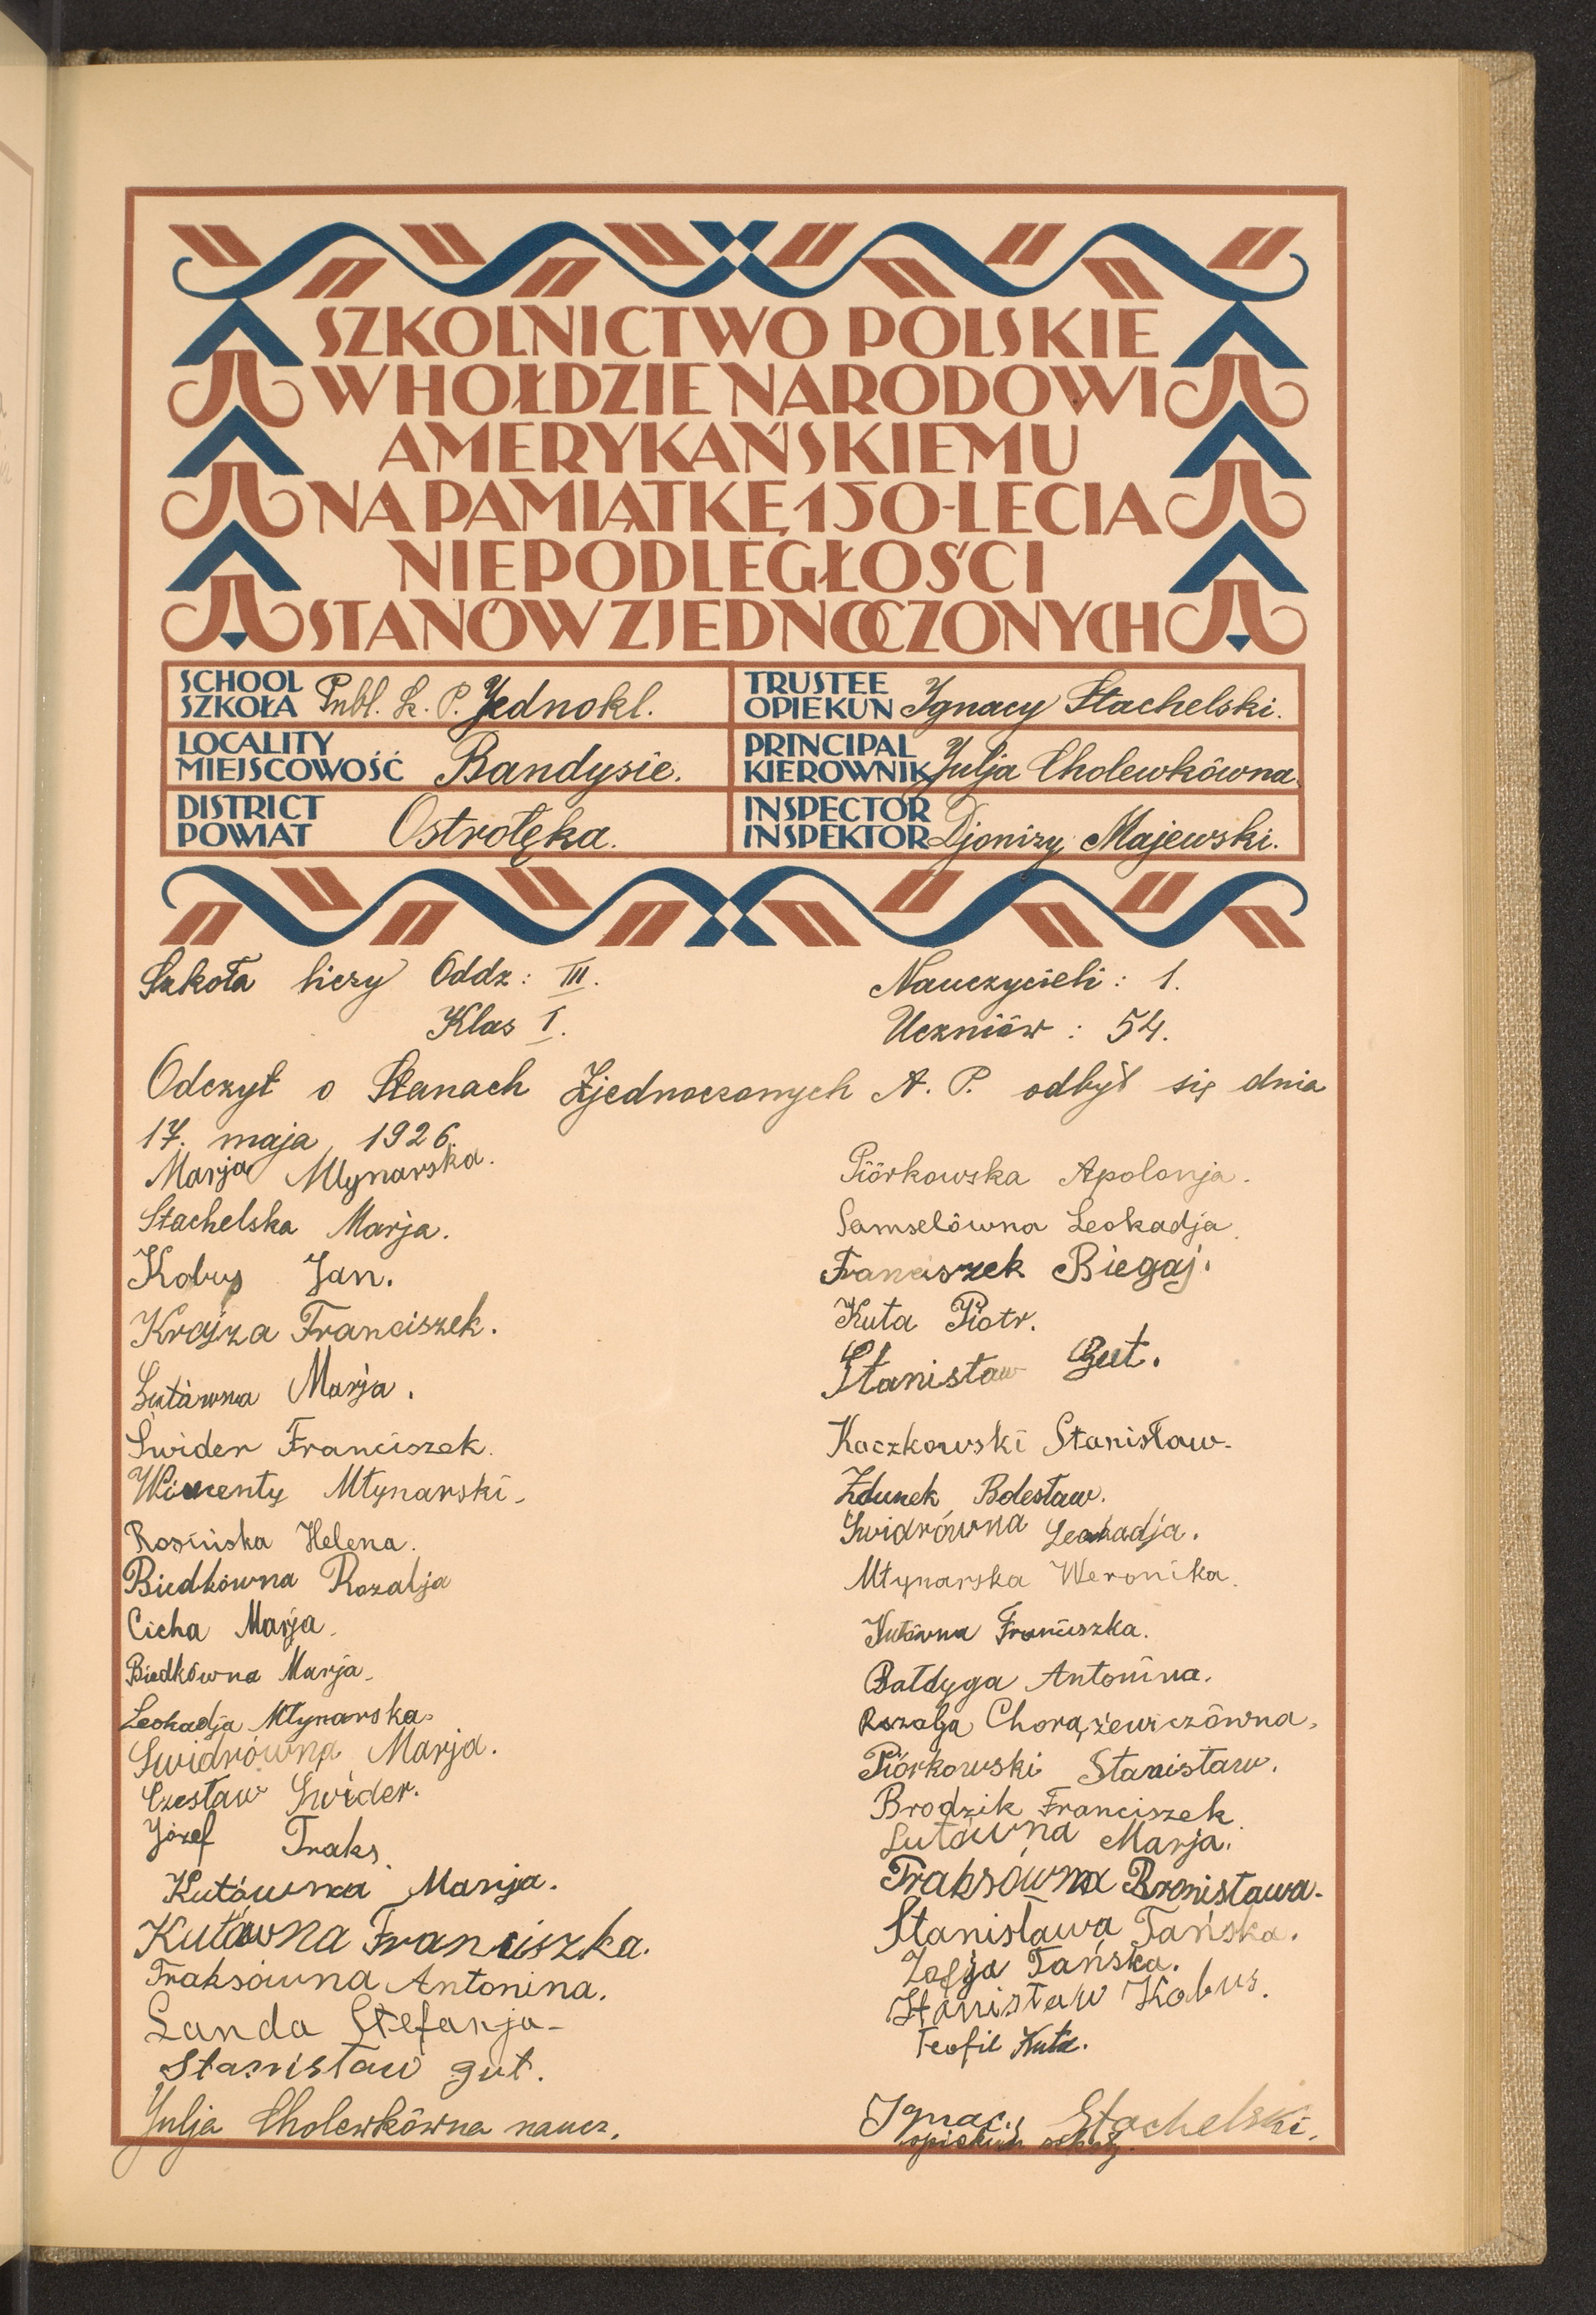 SZKOLNICTWO POLSKIE
W HOŁDZIE NARODOWI
AMERYKAŃSKIEMU
NA PAMIĄTKĘ 150-LECIA
NIEPODLEGŁOŚCI
STANÓW ZJEDNOCZONYCH
SCHOOL
SZKOŁA Publ. Sz. P. Jednokl.
TRUSTEE
OPIEKUN Ignacy Stachelski.
LOCALITY
MIEJSCOWOŚĆ Bandysie.
PRINCIPAL
KIEROWNIK Julja Cholewkówna.
DISTRICT
POWIAT Ostrołęka.
INSPECTOR
INSPEKTOR Djonizy Majewski.
Szkoła liczy Oddz: III. Nauczycieli: 1.
Klas I. Uczniów: 54.
Odczyt o Stanach Zjednoczonych A. P. odbył się dnia
17. maja, 1926.
Marja Młynarska.
Stachelska Marja.
Kobus Jan.
Krajza Franciszek.
Marja.
Świder Franciszek.
Wincenty Młynarski.
Rosińska Helena.
Biedkówna Rozalja
Cicha Marja.
Biedkówna Marja.
Leokadja Młynarska.
Świdrówna Marja.
Czesław Świder.
Józef Traks.
Kutówna Marija.
Kutówna Franciszka.
Traksówna Antonina.
Landa Stefanja.
Stanisław gut.
Julja Cholewkówna naucz.
Piórkowska Apolonja.
Samselówna Leokadja.
Franciszek Biegaj.
Kuta Piotr.
Stanisław Gut.
Kaczkowski Stanisław.
Zdunek Bolesław.
Świdrówna Leokadja.
Młynarska Weronika.
Kutówna Franciszka.
Bałdyga Antonina.
Rozalja Chorążewiczówna.
Piórkowski Stanisław.
Brodzik Franciszek.
Marja.
Traksówna Bronisława.
Stanisława Tańska.
Zofja Tańska.
Stanisław Kobus.
Teofil Kuta.
Ignacy Stachelski.
opiekun szkoły.